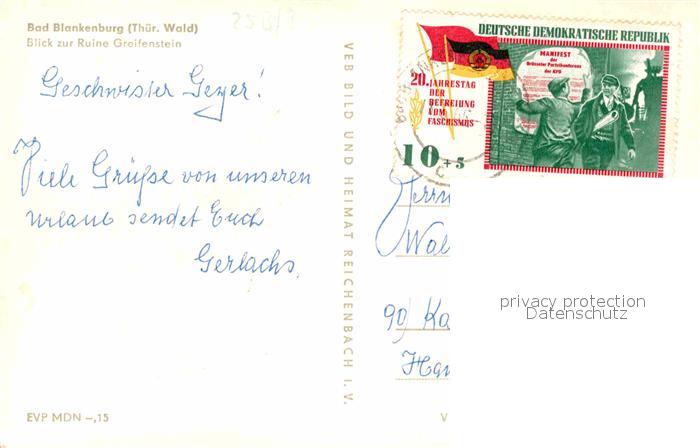 Bad Blankenburg (Thür. Wald)
Blick zur Ruine Greifenstein
Geschwister Geyer!
Viele Grüße von unseren
Urlaub sendet Euch
Gerlachs.
EVP MDN –,15
VEB BILD UND HEIMAT REICHENBACH I. V.
DEUTSCHE DEMOKRATISCHE REPUBLIK
MANIFEST
der
Brüsseler Parteikonferenz
der KPD
20. JAHRESTAG
DER
BEFREIUNG
VOM
FASCHISMUS
10+5
Herrn
Wal
90 Ka
Hai
privacy protection
Datenschutz
V